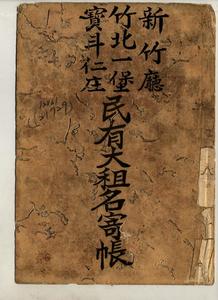 新竹廳
竹北一堡
寳斗仁庄
民有大租名寄帳